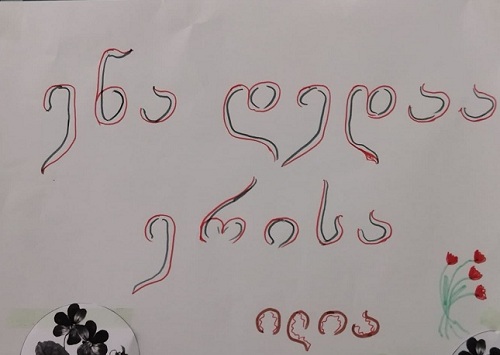 ენა დედაა
ერისა
ილია